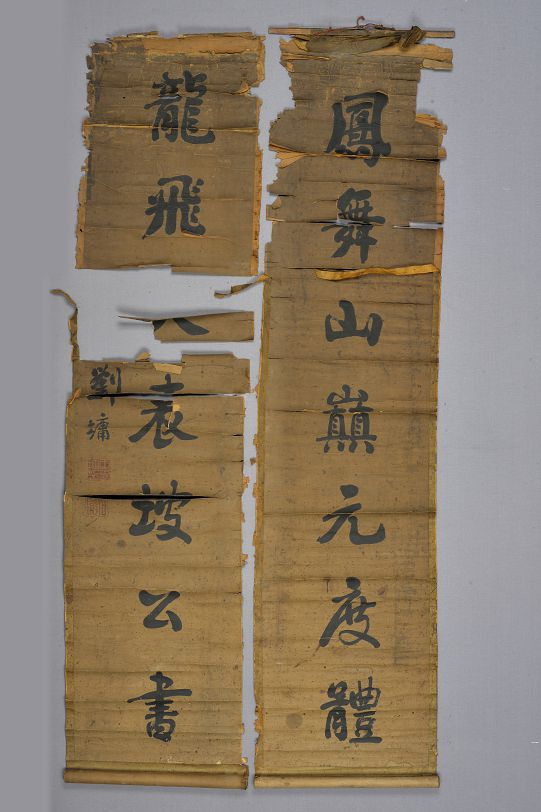 鳳舞山巔元度體
龍飛表坡公書
劉墉